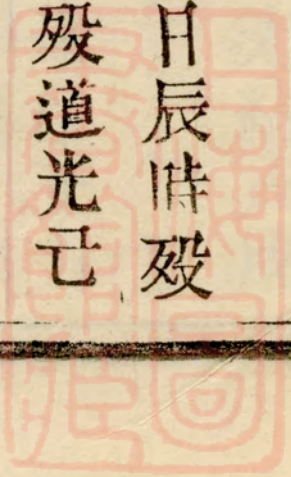 日辰時歿
歿道光己